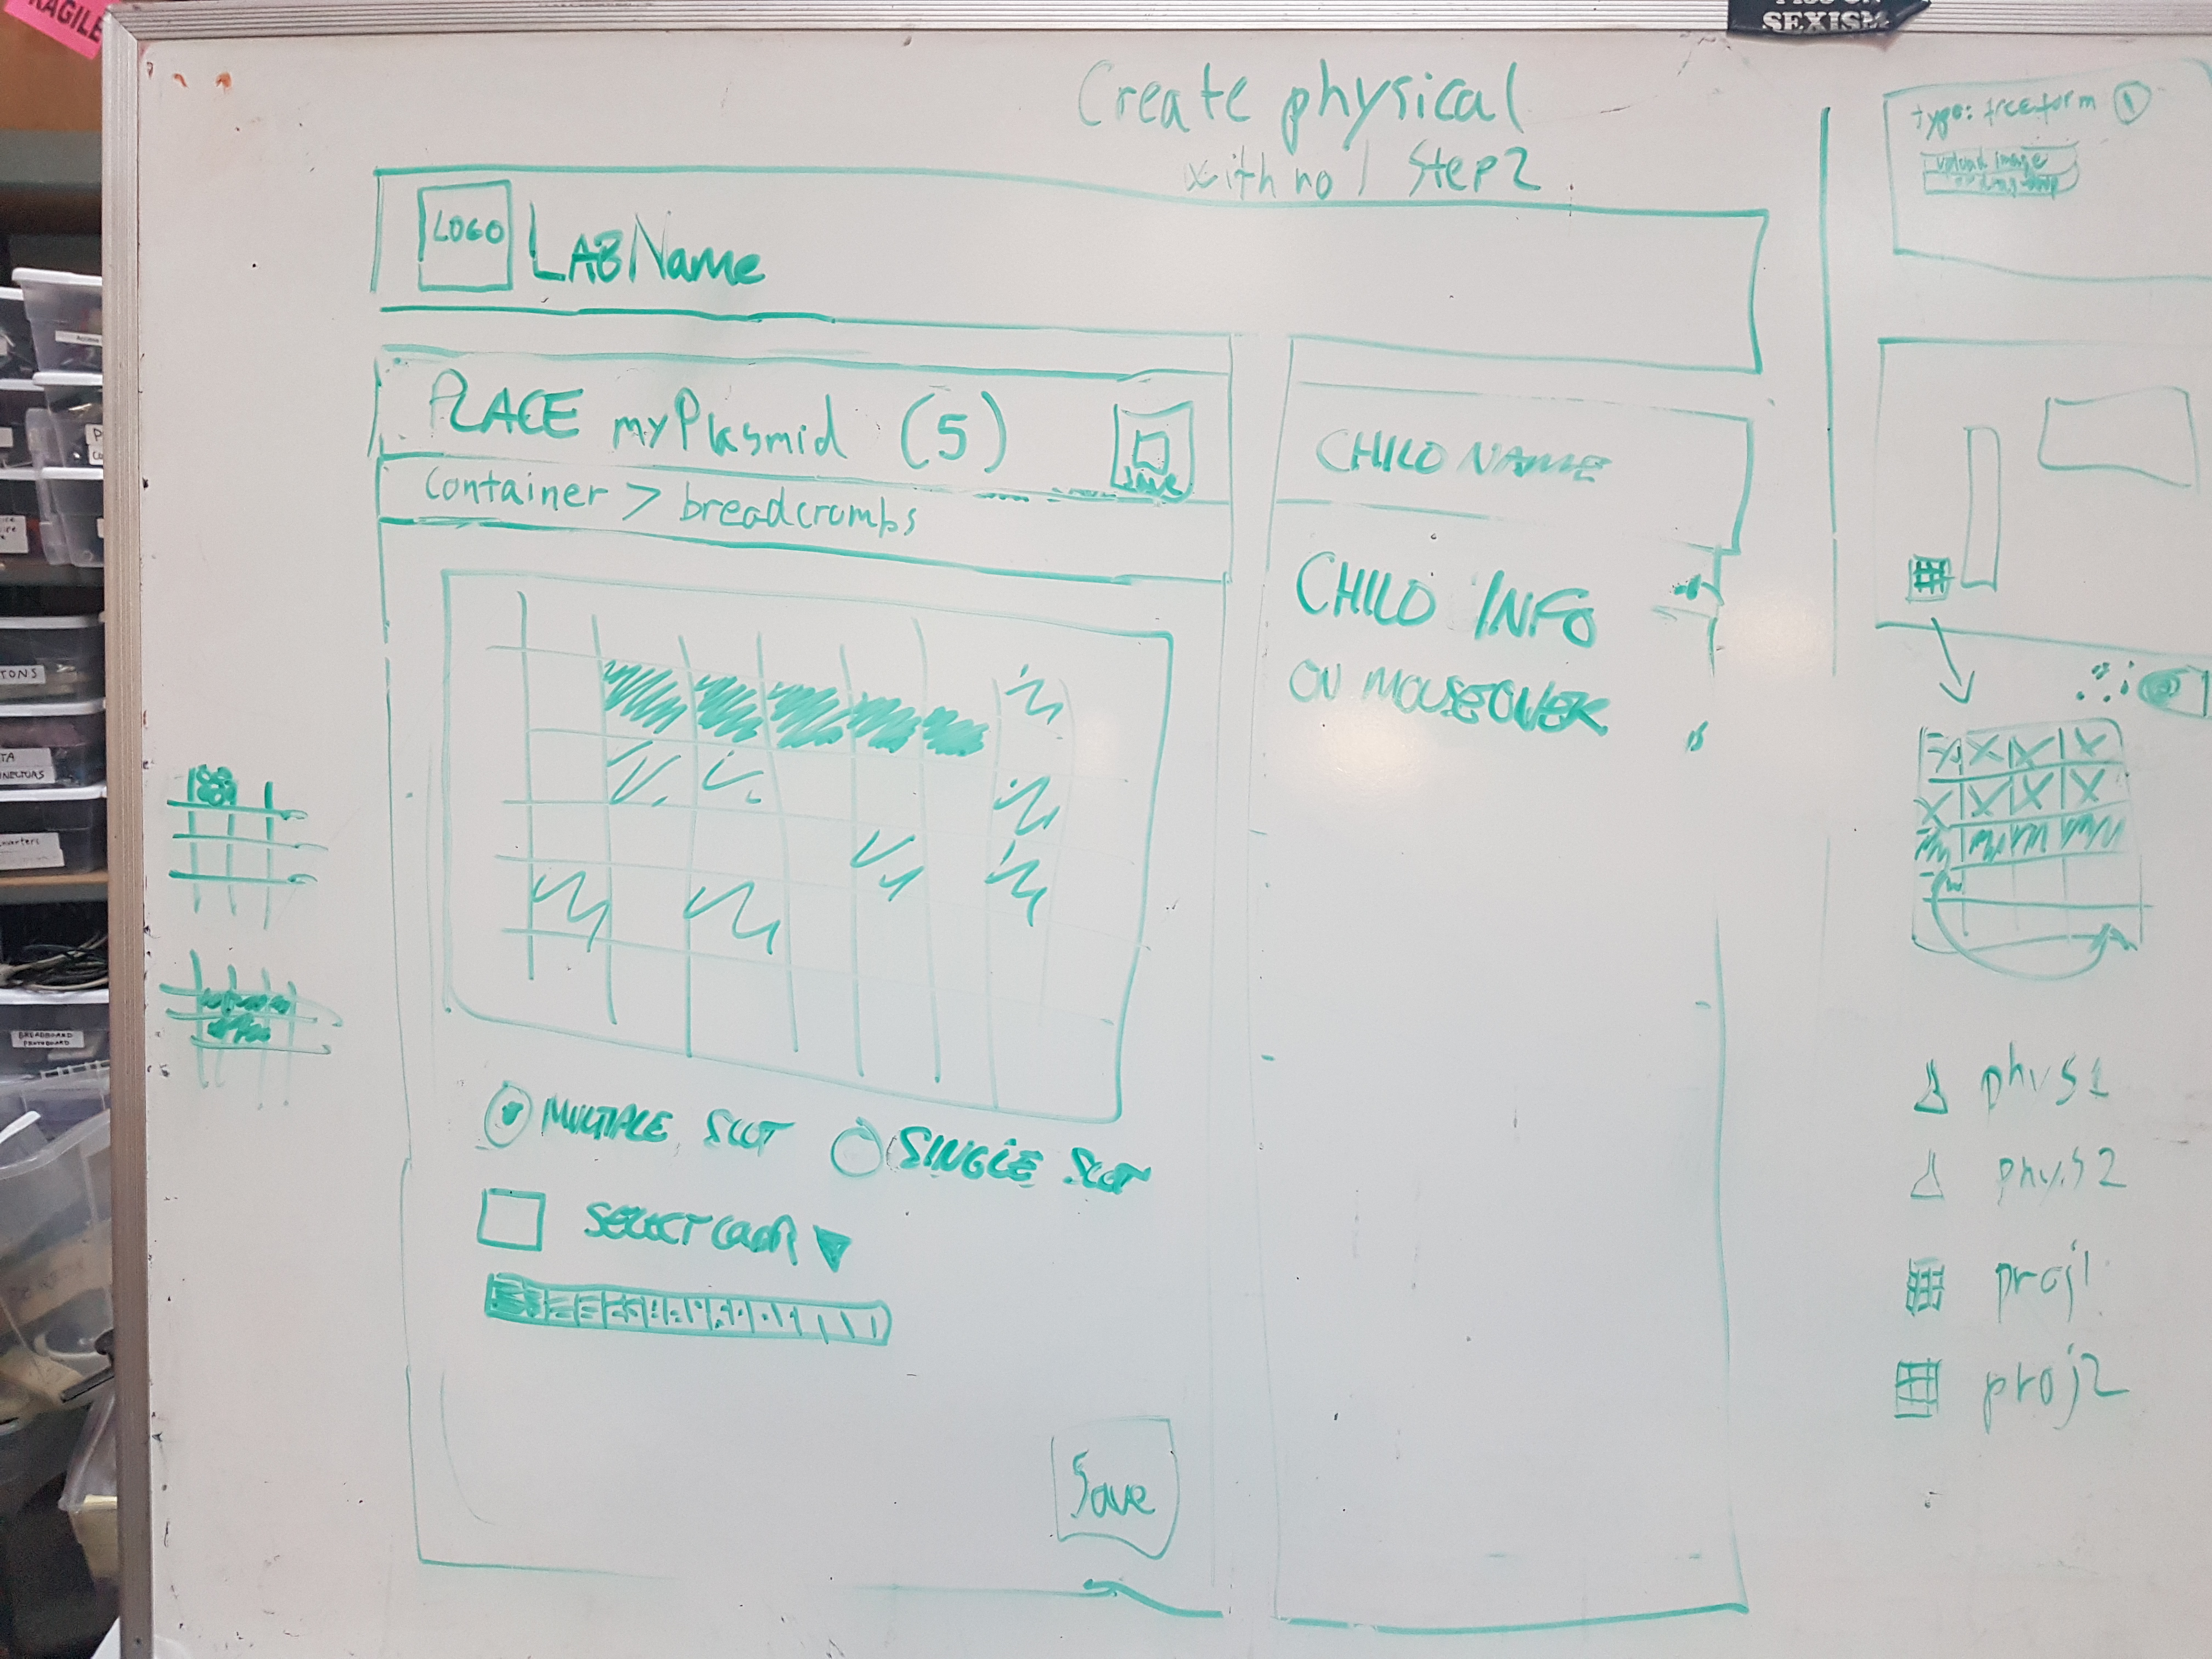 FRAGILE
SEXISM
Create physical
with no / Step 2
LOGO
LAB Name
PLACE myPlasmid (5)
save
container > breadcrumbs
CHILD NAME
CHILD INFO
ON MOUSEOVER
MULTIPLE SLOT
SINGLE SLOT
SELECT COLOR
Save
type: freeform 1
upload image
phys1
phys2
proj1
proj2
BREADBOARD
PROTOBOARD